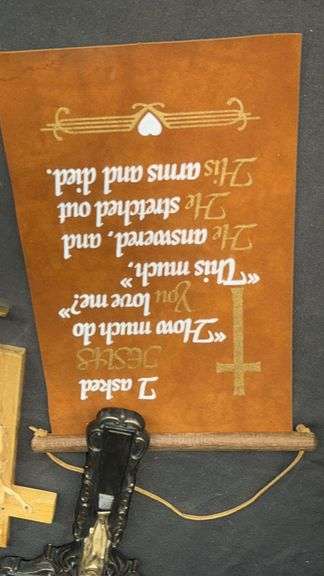 I asked
JESUS
"How much do
You love me?"
"This much."
He answered, and,
He stretched out
His arms and died.